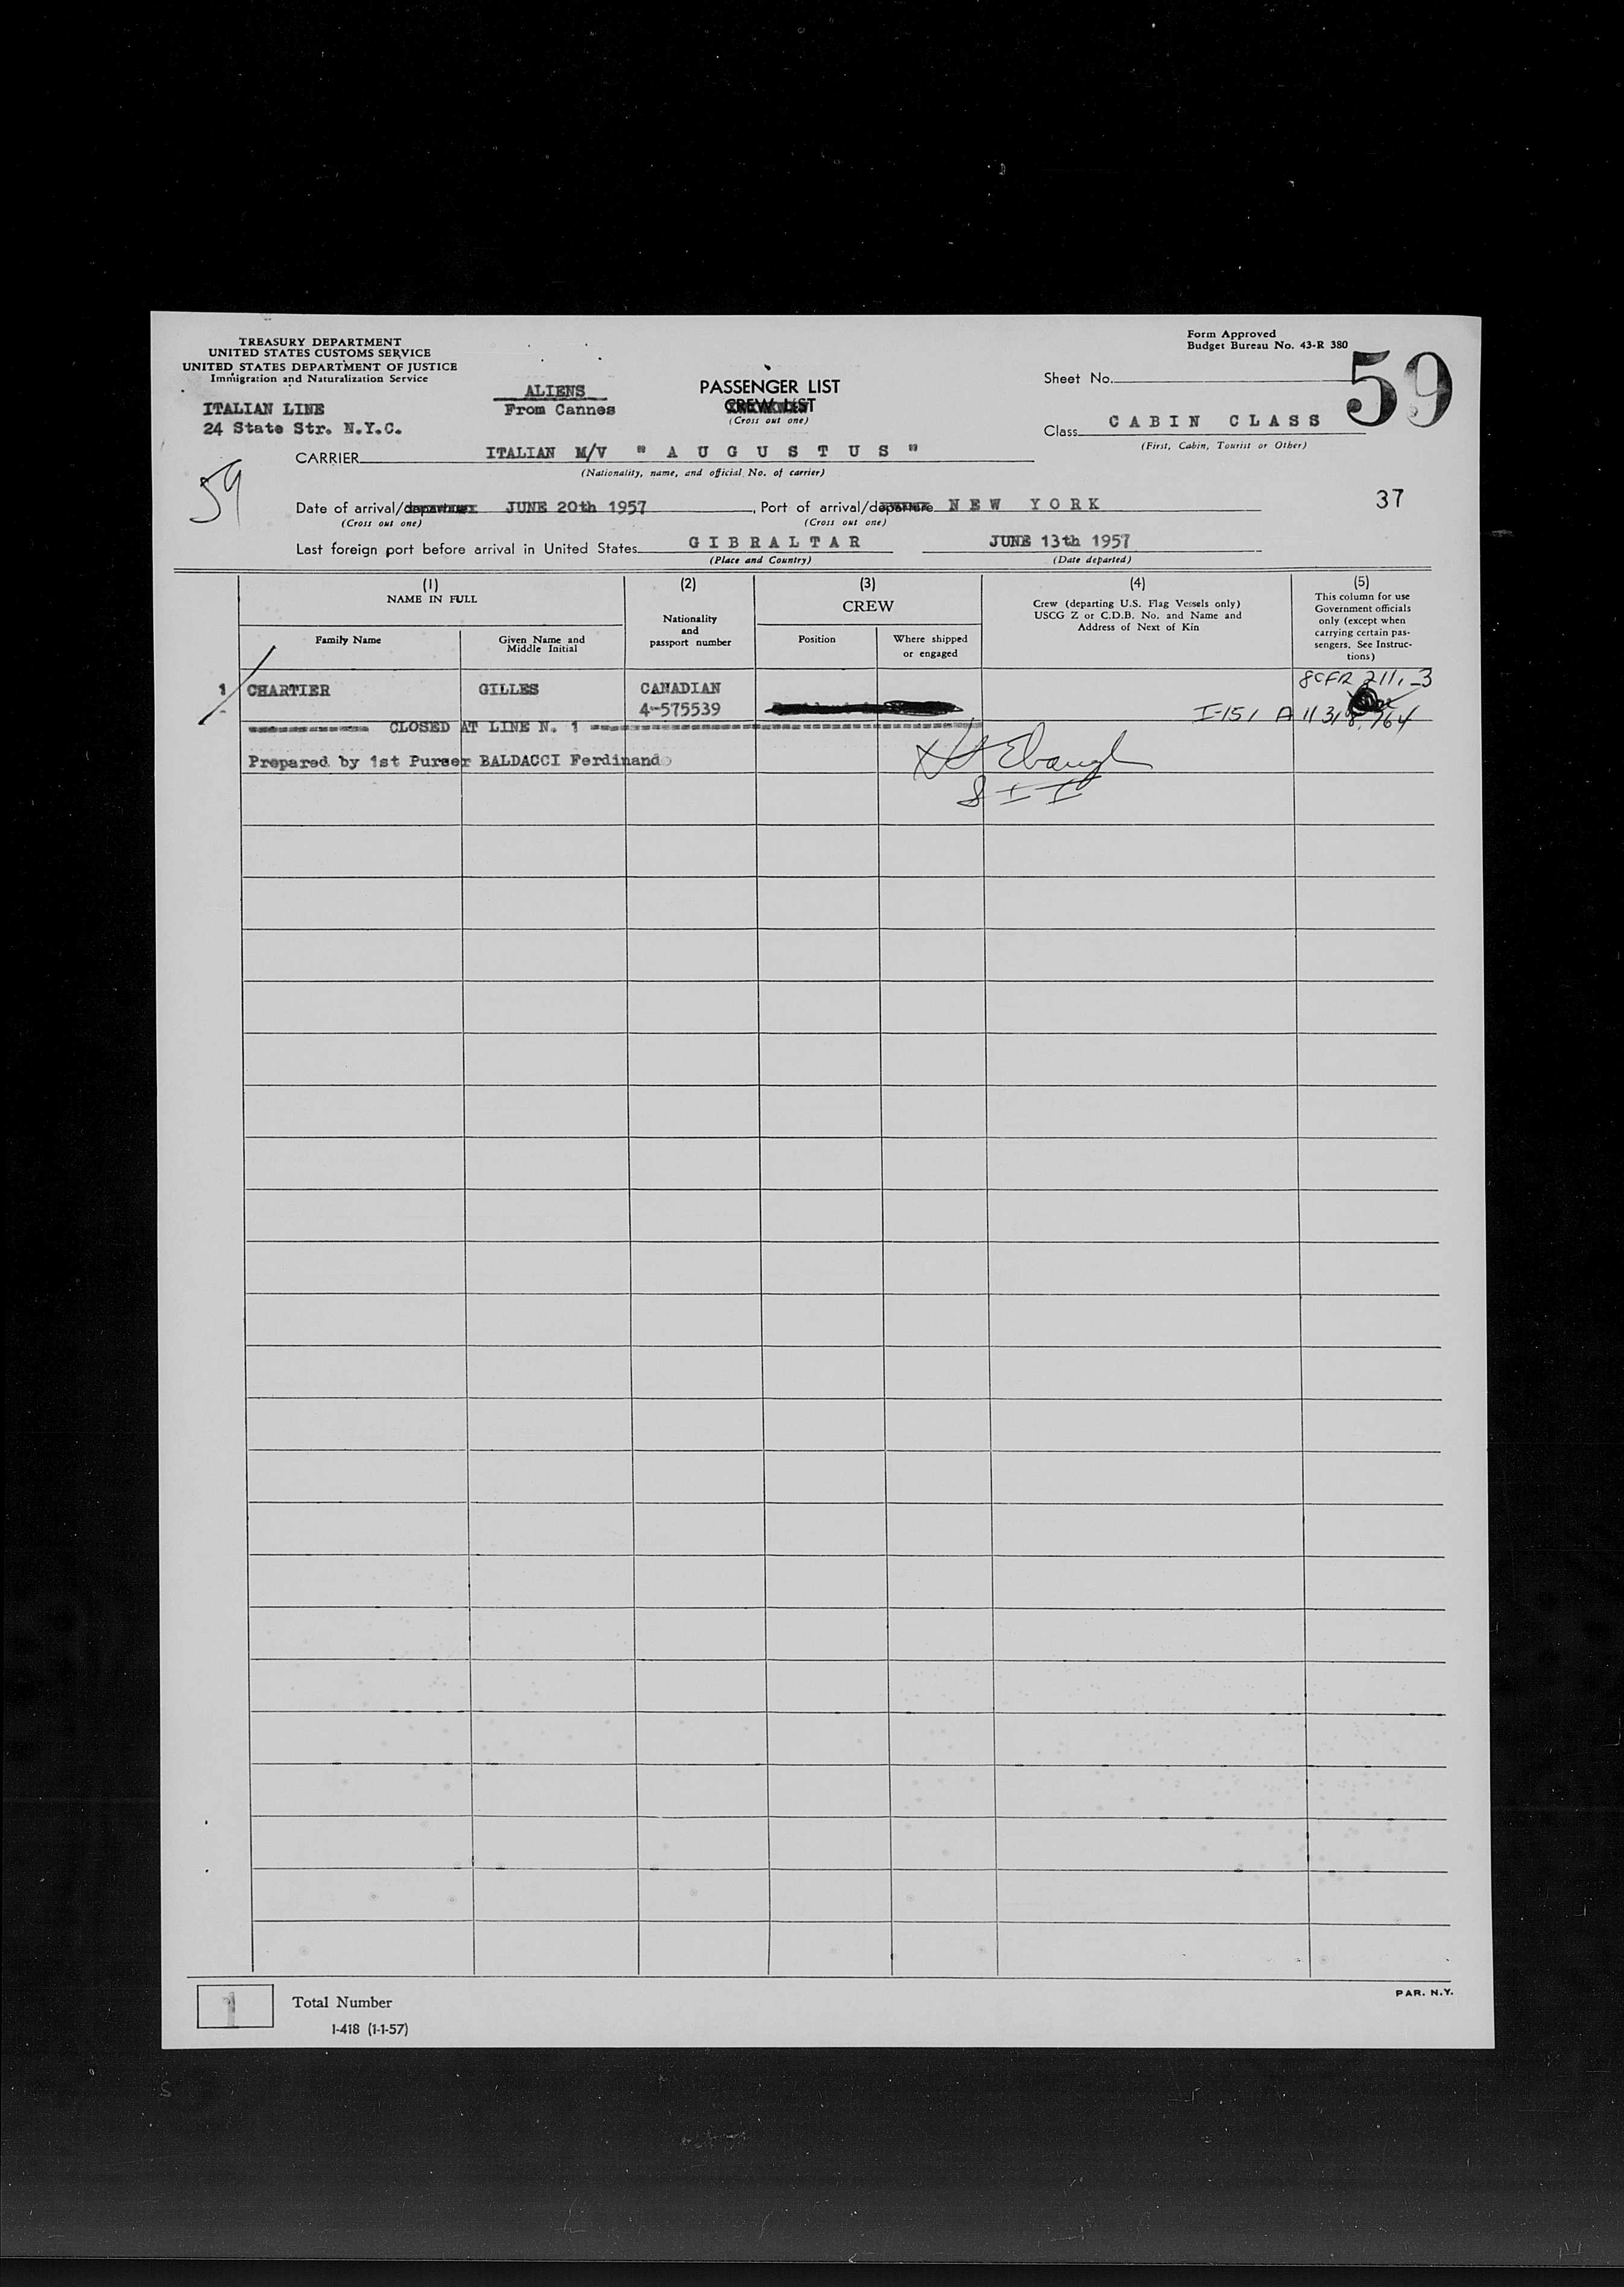 TREASURY DEPARTMENT
UNITED STATES CUSTOMS SERVICE
UNITED STATES DEPARTMENT OF JUSTICE
Immigration and Naturalization Service
ITALIAN LINE
24 State Str. N.Y.C.
ALIENS
From Cannes
PASSENGER LIST
CREW LIST
(Cross out one)
Form Approved
Budget Bureau No. 43-R 380
Sheet No.
59
Class CABIN CLASS
(First, Cabin, Tourist or Other)
CARRIER ITALIAN M/V "AUGUSTUS"
(Nationality, name, and official No. of carrier)
59
Date of arrival/departure JUNE 20th 1957, Port of arrival/departure NEW YORK
(Cross out one) (Cross out one)
37
Last foreign port before arrival in United States GIBRALTAR JUNE 13th 1957
(Place and Country) (Date departed)
(1)
NAME IN FULL
Family Name
Given Name and
Middle Initial
(2)
Nationality
and
passport number
(3)
CREW
Position
Where shipped
or engaged
(4)
Crew (departing U.S. Flag Vessels only)
USCG Z or C.D.B. No. and Name and
Address of Next of Kin
(5)
This column for use
Government officials
only (except when
carrying certain pas-
sengers. See Instruc-
tions)
1 CHARTIER GILLES CANADIAN
4-575539
8CFR 211.3
I-151 A 11 318 764
CLOSED AT LINE N. 1
Prepared by 1st Purser BALDACCI Ferdinando
1
Total Number
I-418 (1-1-57)
PAR. N.Y.